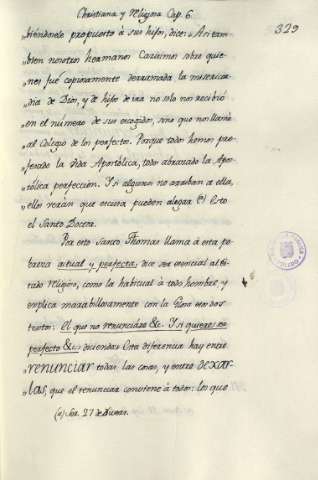 Christiana y Religiosa Cap. 6.
329
biendonoslo propuesto à sus hijos, dice: Asi tam-
bien nosotros hermanos Carisimos sobre quie-
nes fuè copiosamente derramada la misericor-
dia de Dios, y de hijos de ira no solo nos recibiò
en el número de sus escogidos, sino que nos llamò
al Colegio de los perfectos. Porque todos hemos pro-
fesado la vida Apostòlica, todos abrazado la Apos-
tòlica perfección. Y si algunos no arriban a ella,
ellos veràn que escusa pueden alegar (a) Esto
el Santo Doctor.
Por esto Santo Thomas llama à esta po-
breza actual y perfecta: dice ser esencial al Es-
tado religioso, como la habitual à todo hombre, y
explica marabillosamente con la estos dos
textos: El que no renunciare &c. Y si quieres ser
perfecto &c: diciendo: Esta diferencia hay entre
renunciar todas las cosas, y entre dexar-
las, que el renunciar conviene à todos: los que
(a) Ser. 27 de